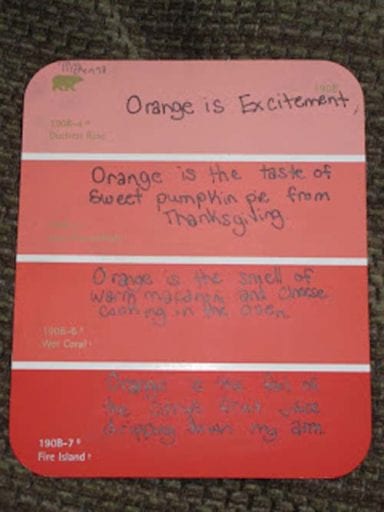 190B
Orange is Excitement,
190B-4
Duchess Rose
Orange is the taste of
sweet pumpkin pie from
Thanksgiving.
Orange is the smell of
warm macaroni and cheese
cooking in the oven.
190B-6
Wet Coral
Orange is the feel of
the orange fruit juice
dripping down my arm
190B-7
Fire Island